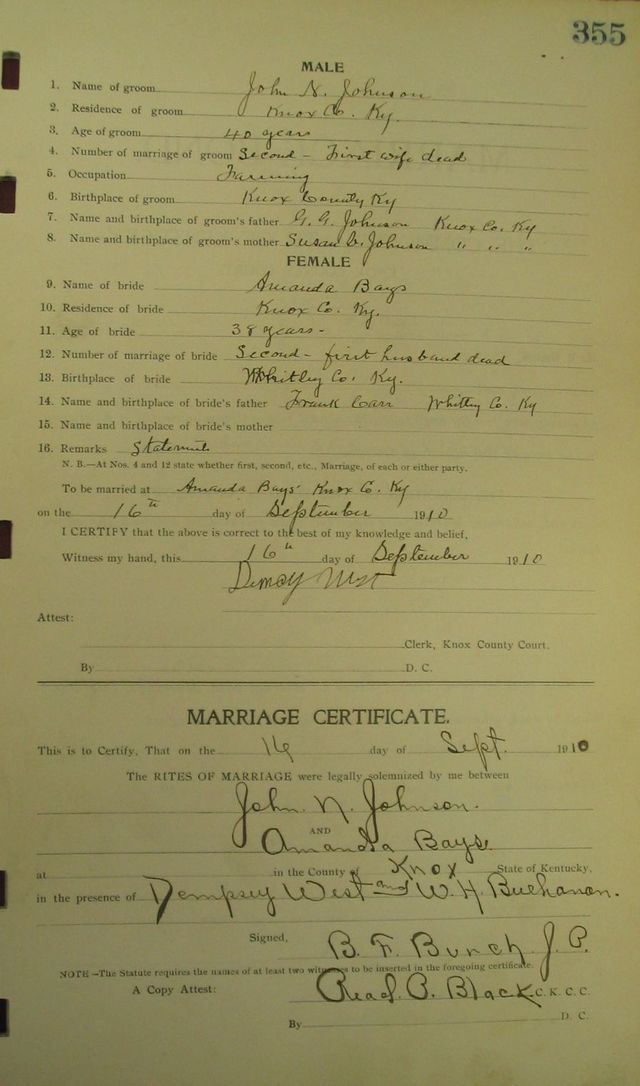 355
MALE
1. Name of groom John N. Johnson
2. Residence of groom Knox Co. Ky.
3. Age of groom 40 years
4. Number of marriage of groom Second - First wife dead
5. Occupation Farming
6. Birthplace of groom Knox County Ky
7. Name and birthplace of groom's father G. G. Johnson Knox Co. Ky
8. Name and birthplace of groom's mother Susan C. Johnson " " "
FEMALE
9. Name of bride Amanda Bays
10. Residence of bride Knox Co. Ky.
11. Age of bride 38 years -
12. Number of marriage of bride Second - first husband dead
13. Birthplace of bride Whitley Co. Ky.
14. Name and birthplace of bride's father Frank Carr Whitley Co. Ky
15. Name and birthplace of bride's mother
16. Remarks Statements
N. B.—At Nos. 4 and 12 state whether first, second, etc., Marriage, of each or either party.
To be married at Amanda Bays' Knox Co. Ky
on the 16th day of September 1910
I CERTIFY that the above is correct to the best of my knowledge and belief.
Witness my hand, this 16th day of September 1910
West
Attest:
Clerk, Knox County Court.
By D. C.
MARRIAGE CERTIFICATE.
This is to Certify, That on the 16 day of Sept. 1910
The RITES OF MARRIAGE were legally solemnized by me between
John N. Johnson.
AND
Amandia Bays.
at in the County of Knox State of Kentucky,
in the presence of Dempsey West and W. H. Buchanon.
Signed, B. F. Bunch J. P.
NOTE—The Statute requires the names of at least two witnesses to be inserted in the foregoing certificate.
A Copy Attest: Read P. Black C. K. C. C.
By D. C.